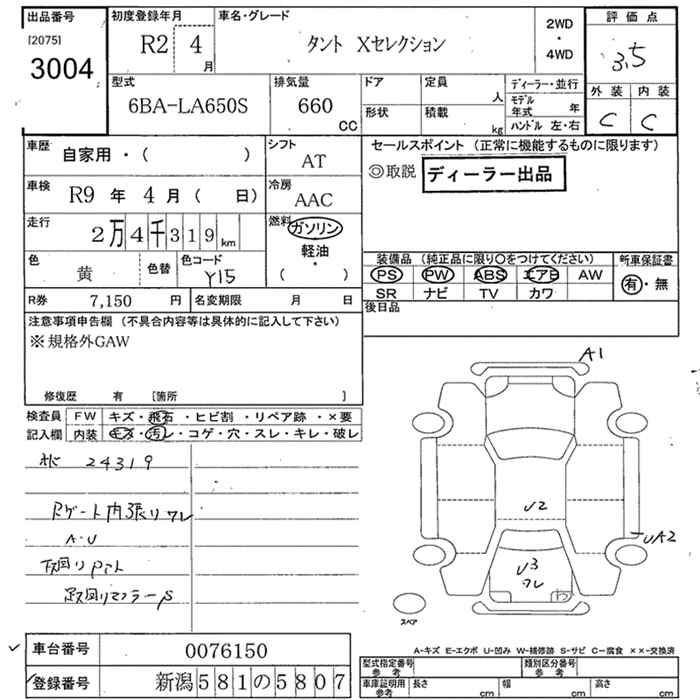 出品番号
[2075]
3004
初度登録年月
R2 4月
車名・グレード
タント Xセレクション
2WD
・
4WD
評価点
3.5
外装 内装
C C
型式
6BA-LA650S
排気量
660
CC
ドア
形状
定員
人
積載
kg
ディーラー・並行
モデル年式 年
ハンドル 左・右
車歴
自家用・( )
シフト
AT
車検
R9 年 4 月 ( 日)
冷房
AAC
走行
2万4千319km
燃料
ガソリン・
軽油・
( )
色
黄
色替
色コード
Y15
R券 7,150 円
名変期限 月 日
セールスポイント (正常に機能するものに限ります)
◎取説 ディーラー出品
装備品 (純正品に限り○をつけてください)
PS PW ABS エアB AW
SR ナビ TV カワ
新車保証書
有・無
後日品
注意事項申告欄 (不具合内容等は具体的に記入して下さい)
※規格外GAW
修復歴 有 [箇所 ]
検査員
記入欄
FW キズ・飛石・ヒビ割・リペア跡・×要
内装 キズ・汚レ・コゲ・穴・スレ・キレ・破レ
24319
Rゲート内張りワレ
A・U
下回りP
下回りマフラーS
A1
U2
UA2
U3
ワレ
ワ
スペア
A-キズ E-エクボ U-凹み W-補修跡 S-サビ C-腐食 ××-交換済
車台番号 0076150
登録番号 新潟581の5807
型式指定番号
参考
類別区分番号
参考
車庫証明用
参考
長さ cm
幅 cm
高さ cm